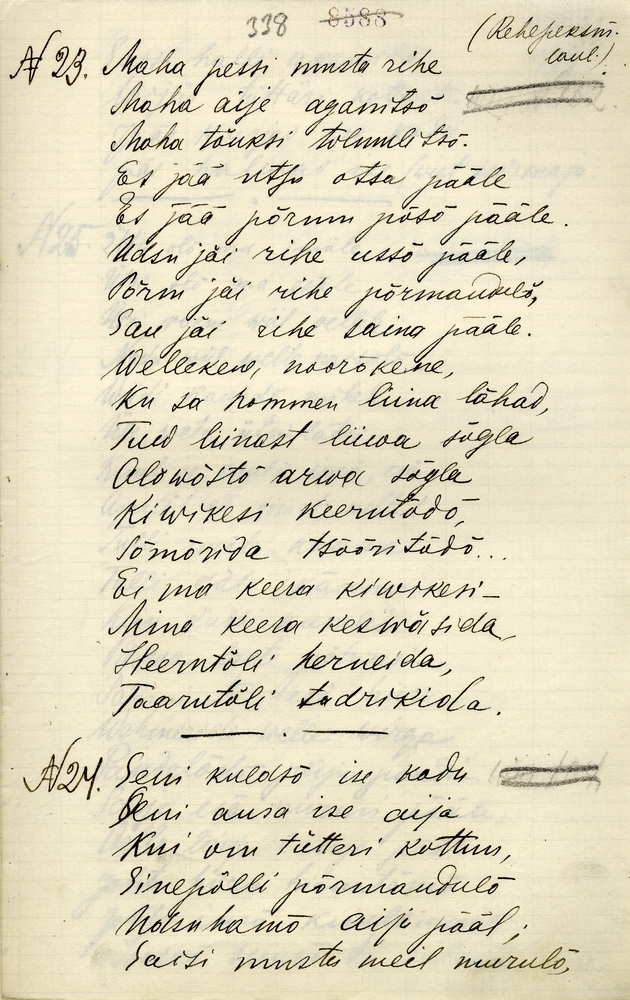 338 8588
(Rehepeksmi-
laul.)
N 23. Maha pessi musta rihe
Maha aije aganitsõ
Maha tõuksi tolmulitsõ.
Es jää utsu otsa pääle
Es jää põrmu põsõ pääle.
Udsu jäi rihe ussõ pääle,
Põrm jäi rihe põrmandulõ,
Sau jäi rihe saina pääle.
Wellekene, noorõkene,
Ku sa hommen liina lähad,
Tuud liinast liiwa sõgla
Alõwõstõ arwa sõgla
Kiwikesi keerutõdõ,
Sõmõrida tsõõritõdõ...
Ei ma keera kiwikesi—
Mina keera keswäsida,
Heerutõli herneida,
Taarutõli tadrikida.
N 24. Seni kuldsõ ise kodu
Seni ausa ise aija
Kui om tütteri kottun,
Sinepõlli põrmandulõ
Udsuhamõ aija pääl;
Saisi musta meil murulõ,